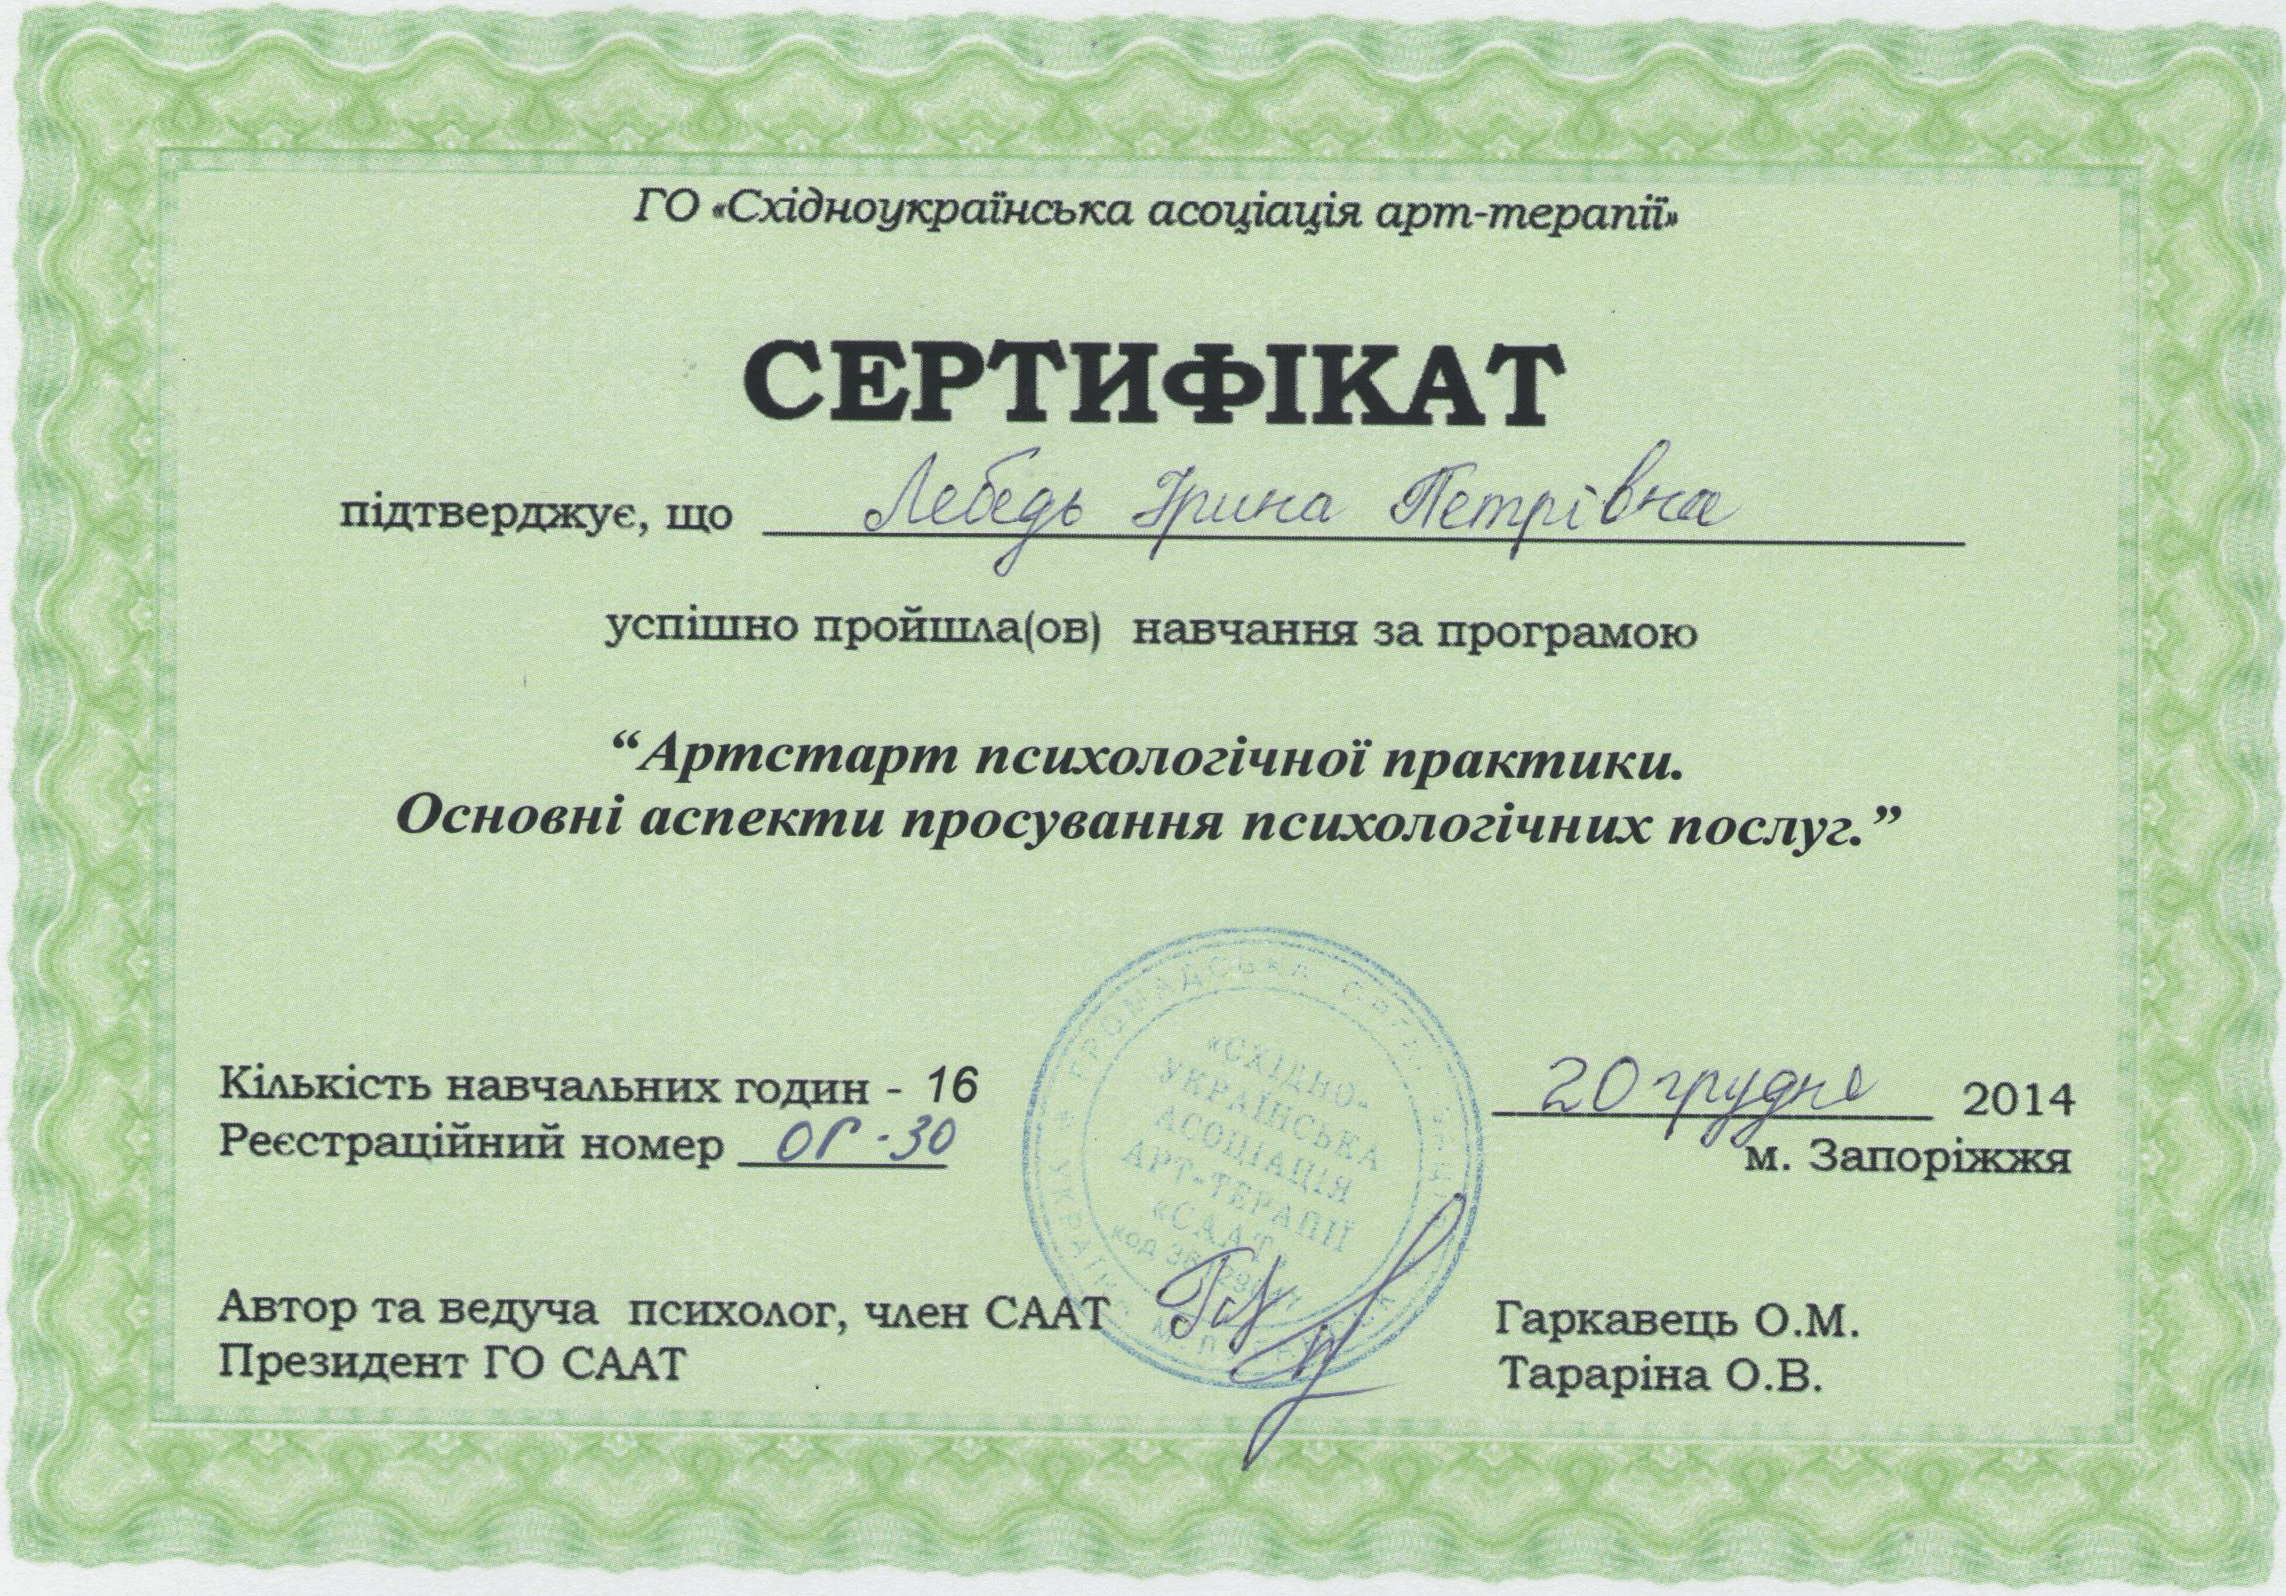 ГО «Східноукраїнська асоціація арт-терапії»
СЕРТИФІКАТ
підтверджує, що Лебедь Ірина Петрівна
успішно пройшла(ов) навчання за програмою
“Артстарт психологічної практики.
Основні аспекти просування психологічних послуг.”
Кількість навчальних годин - 16
Реєстраційний номер ОГ-30
20 грудня 2014
м. Запоріжжя
ГРОМАДСЬКА
УКРАЇНА
«СХІДНО-
УКРАЇНСЬКА
АСОЦІАЦІЯ
АРТ-ТЕРАПІЇ
«СААТ»
код
Автор та ведуча психолог, член СААТ Гаркавець О.М.
Президент ГО СААТ Тараріна О.В.